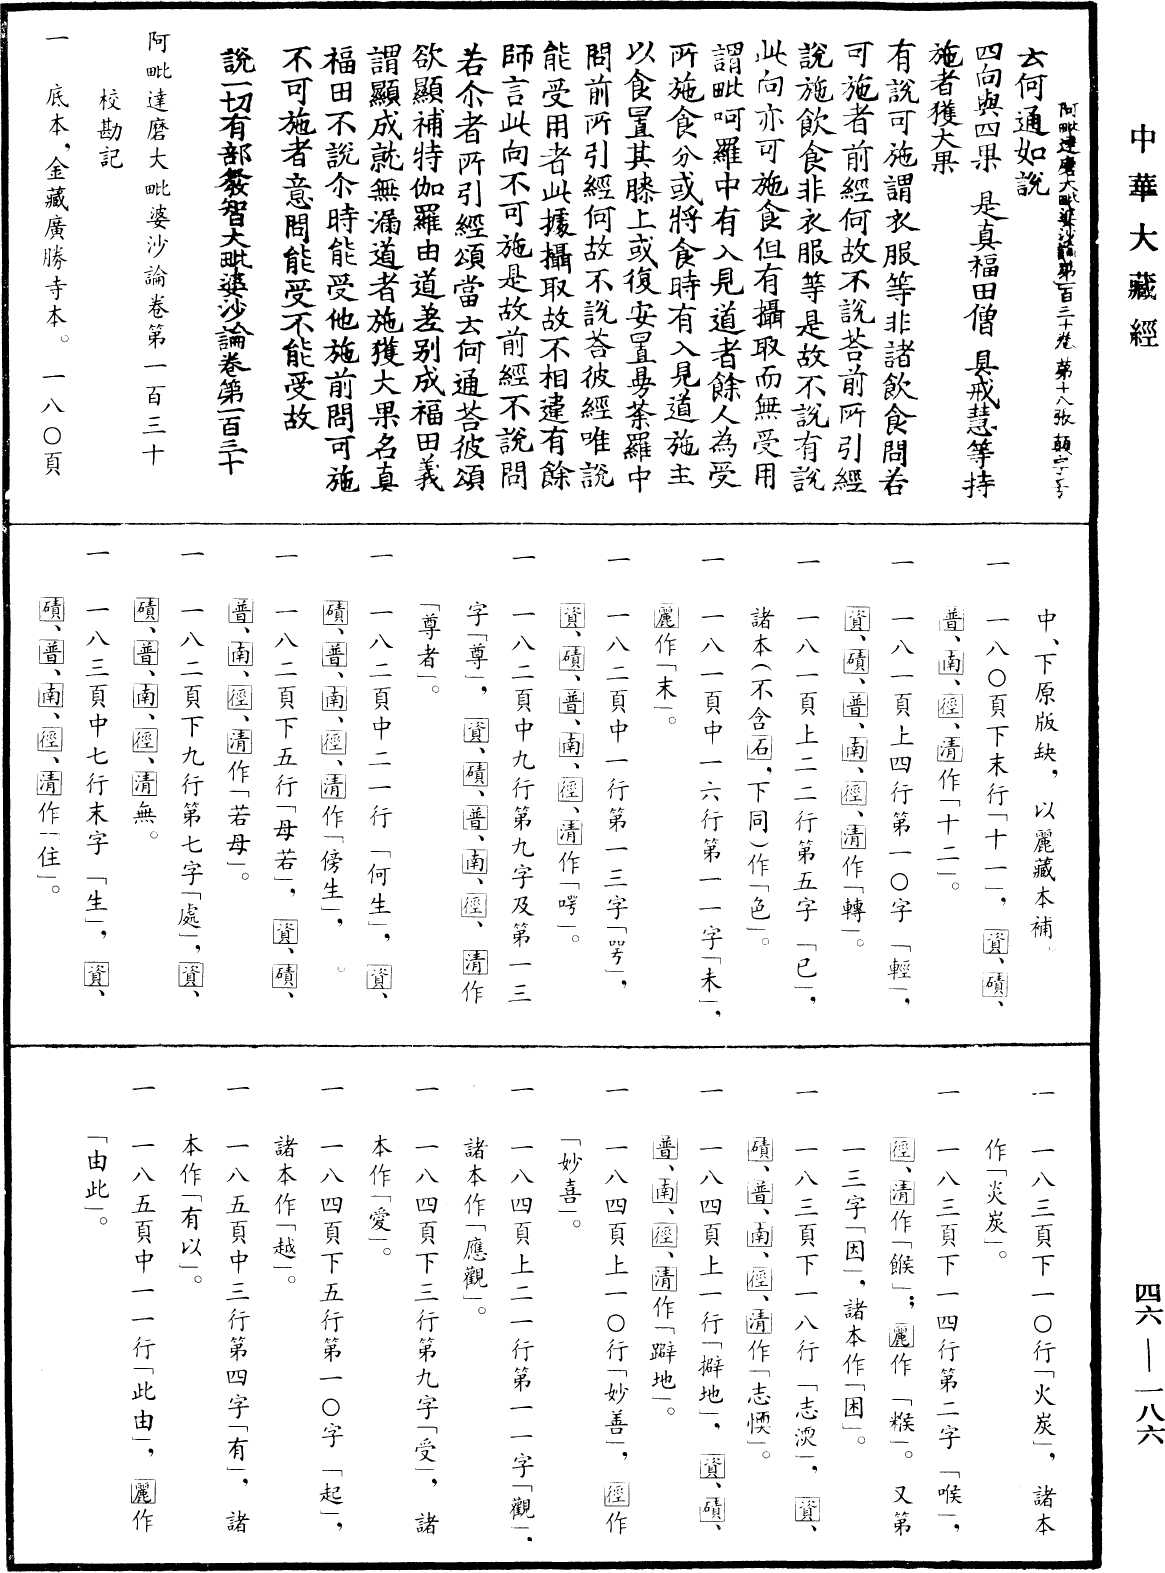 中華大藏經
阿毗達磨大毗婆沙論第一百三十卷 第十八張 顛字号
云何通如說
四向與四果 是真福田僧 具戒慧等持
施者獲大果
有說可施謂衣服等非諸飲食問若
可施者前經何故不說荅前所引經
說施飲食非衣服等是故不說有說
此向亦可施食但有攝取而無受用
謂毗呵羅中有入見道者餘人為受
所施食分或將食時有入見道施主
以食置其膝上或復安置㝵荼羅中
問前所引經何故不說荅彼經唯說
能受用者此據攝取故不相違有餘
師言此向不可施是故前經不說問
若尒者所引經頌當云何通荅彼頌
欲顯補特伽羅由道差別成福田義
謂顯成就無漏道者施獲大果名真
福田不說尒時能受他施前問可施
不可施者意問能受不能受故
說一切有部發智大毗婆沙論卷第一百三十
阿毗達磨大毗婆沙論卷第一百三十
校勘記
一 底本，金藏廣勝寺本。一八〇頁
中、下原版缺，以麗藏本補。
一 一八〇頁下末行「十一」，資、磧、
普、南、徑、清作「十二」。
一 一八一頁上四行第一〇字「輕」，
資、磧、普、南、徑、清作「轉」。
一 一八一頁上二二行第五字「已」，
諸本（不含石，下同）作「色」。
一 一八一頁中一六行第一一字「未」，
麗作「末」。
一 一八二頁中一行第一三字「咢」，
資、磧、普、南、徑、清作「㗁」。
一 一八二頁中九行第九字及第一三
字「尊」，資、磧、普、南、徑、清作
「尊者」。
一 一八二頁中二一行「何生」，資、
磧、普、南、徑、清作「傍生」。
一 一八二頁下五行「母若」，資、磧、
普、南、徑、清作「若母」。
一 一八二頁下九行第七字「處」，資、
磧、普、南、徑、清無。
一 一八三頁中七行末字「生」，資、
磧、普、南、徑、清作「住」。
一 一八三頁下一〇行「火炭」，諸本
作「炎炭」。
一 一八三頁下一四行第二字「喉」，
徑、清作「餱」；麗作「糇」。又第
一三字「因」，諸本作「困」。
一 一八三頁下一八行「志㳷」，資、
磧、普、南、徑、清作「志愞」。
一 一八四頁上一行「擗地」，資、磧、
普、南、徑、清作「躃地」。
一 一八四頁上一〇行「妙善」，徑作
「妙喜」。
一 一八四頁上二一行第一一字「觀」，
諸本作「應觀」。
一 一八四頁下三行第九字「受」，諸
本作「愛」。
一 一八四頁下五行第一〇字「起」，
諸本作「越」。
一 一八五頁中三行第四字「有」，諸
本作「有以」。
一 一八五頁中一一行「此由」，麗作
「由此」。
四六—一八六